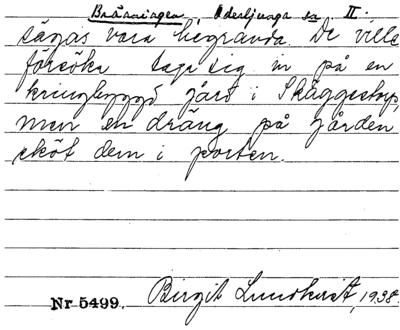 Bränningen, Oderljunga sn II.
sägas vara begravda. De ville
försöka taga sig in på en
kringbyggd gård i Skäggestorp,
men en dräng på gården
sköt dem i porten.
Nr 5499. Birgit Lundkvist, 1938.